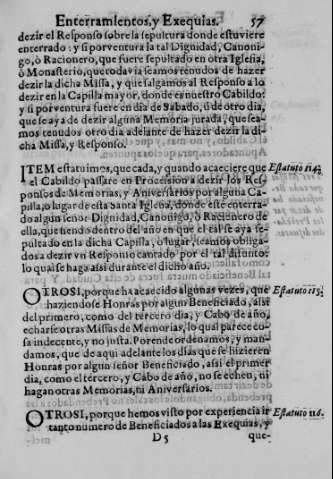 Enterramientos, y Exequias. 57
dezir el Responso sobre la sepultura donde estuviere
enterrado: y si por ventura la tal Dignidad, Canoni-
go, ò Racionero, que fuere sepultado en otra Iglesia,
ò Monasterio, que todavia seamos tenudos de hazer
dezir la dicha Missa, y que salgamos al Responso a lo
dezir en la Capilla mayor, donde es nuestro Cabildo:
y si por ventura fuere en dia de Sabado, ú de otro dia,
que se aya de dezir alguna Memoria jurada, que sea-
mos tenudos otro dia adelante de hazer dezir la di-
cha Missa, y Responso.
ITEM estatuimos, que cada, y quando acaeciere que Estatuto 114.
el Cabildo passare en Procession a dezir los Res-
ponsos de Memorias, y Aniversarios por alguna Ca-
pilla, o lugar de esta Santa Iglesia, donde este enterra-
do algun señor Dignidad, Canonigo, ò Racionero de
ella, que siendo dentro del año en que el tal se aya se-
pultado en la dicha Capilla, ò lugar, seamos obliga-
dos a dezir vn Responso cantado por el tal difunto:
lo qual se haga assi durante el dicho año.
OTROSI, porque ha acaecido algunas vezes, que Estatuto 115.
haziendose Honras por algun Beneficiado, assi
del primero, como del tercero dia, y Cabo de año,
echarse otras Missas de Memorias, lo qual parece co-
sa indecente, y no justa. Porende ordenamos, y man-
damos, que de aqui adelante los dias que se hizieren
Honras por algun señor Beneficiado, assi el primer
dia, como el tercero, y Cabo de año, no se echen, ni
hagan otras Memorias, ni Aniversarios.
OTROSI, porque hemos visto por experiencia ir Estatuto 116.
tanto numero de Beneficiados a las Exequias, y
D 5 que-